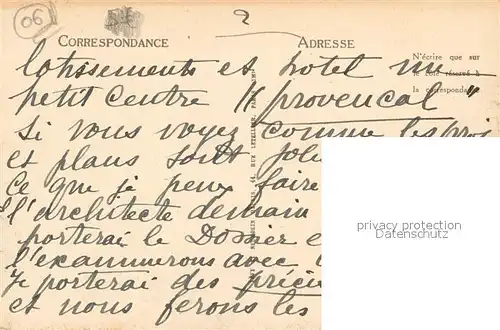 06
2
CORRESPONDANCE
ADRESSE
N'écrire que sur
le côté réservé à
la correspondance
lotissements et hotel un
petit centre "provencal"
Si vous voyez comme les
et plans sont
ce que je peux faire
l'architecte demain
porterai le Dossier
l'examinerons avec
Je porterai des
et nous ferons les
privacy protection
Datenschutz